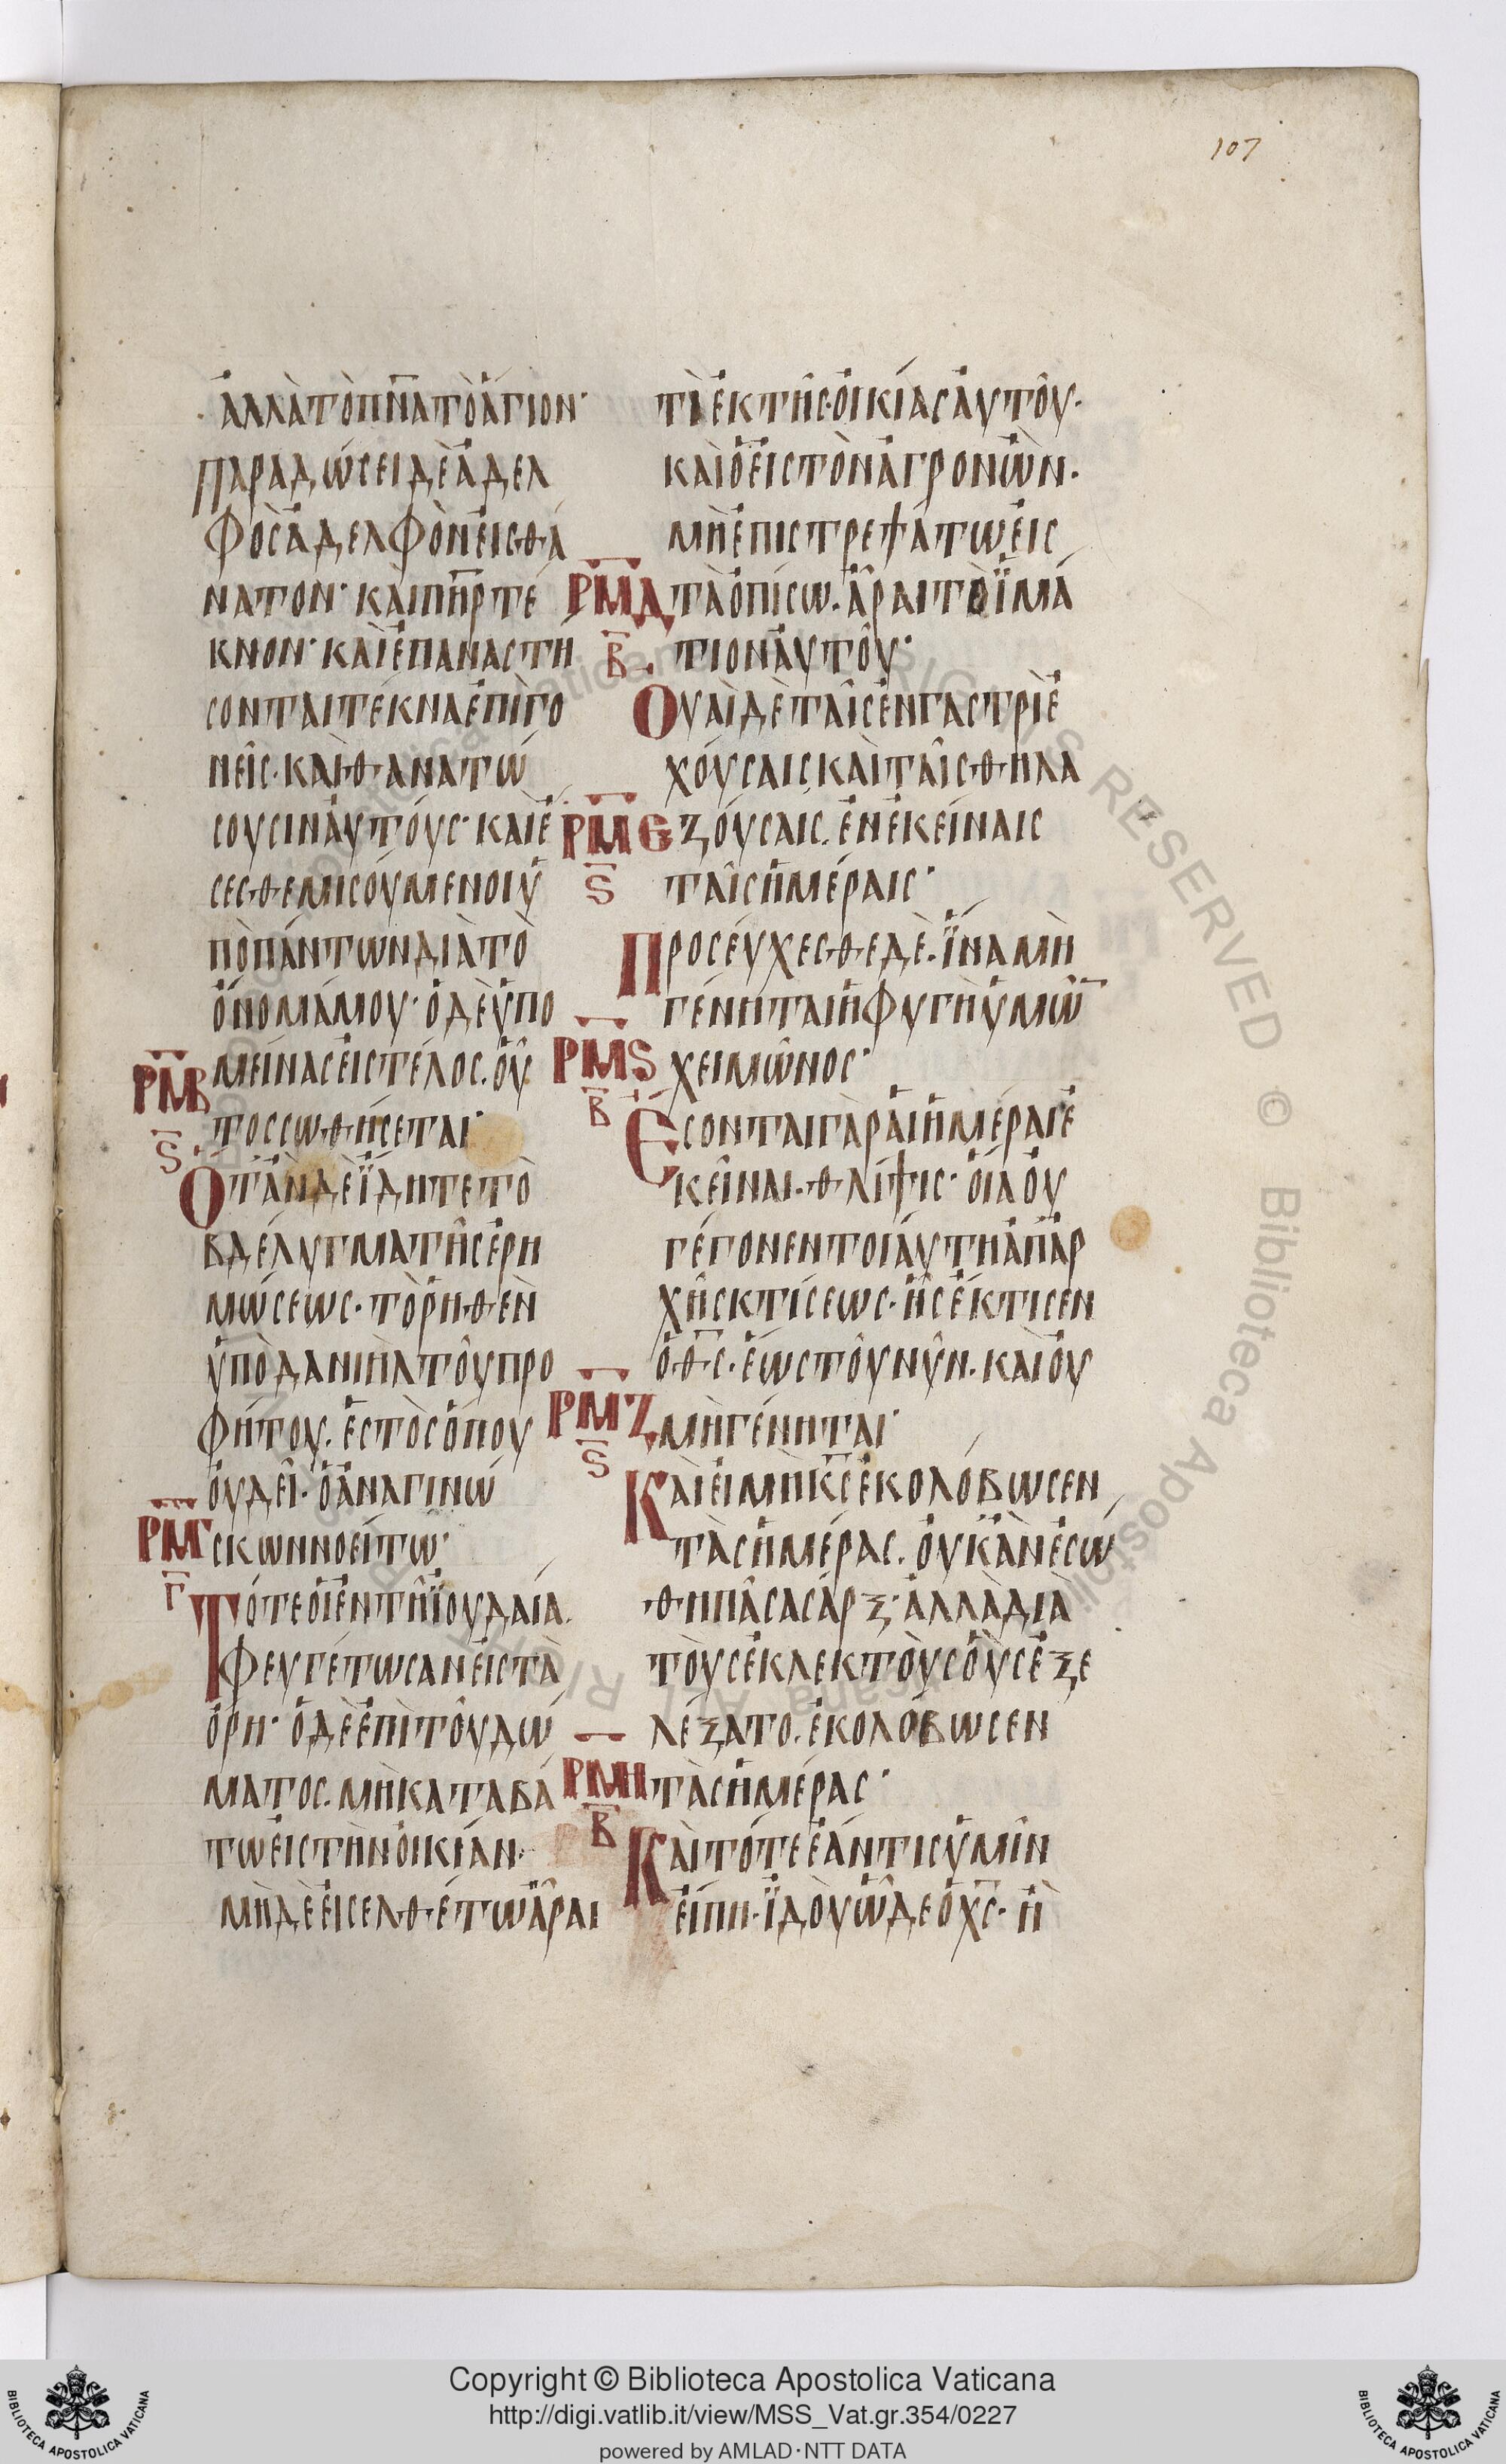 107
ἀλλὰτὸπ̅ν̅ατὸἅγιον·
παραδώσειδὲἀδελ
φὸςἀδελφὸνεἰςθά
νατον· καὶπ̅η̅ρτέ
κνον· καὶἐπαναστή
σονταιτέκναἐπὶγο
νεῖς· καὶθανατώ
σουσιναὐτούς· καὶἔ
σεσθεμισούμενοιὑ
πὸπάντωνδιὰτὸ
ὄνομάμου· ὁδὲὑπο
ΡΜΒ μείναςεἰςτέλος. οὗ
Ϛ τοςσωθήσεται·
Ὅτανδὲἴδητετὸ
βδέλυγματῆςἐρη
μώσεως· τὸῥηθὲν
ὑπὸδανιὴλτοῦπρο
φήτου. ἑστὸςὅπου
οὐδεῖ· ὁἀναγινώ
ΡΜΓ σκωννοείτω·
Γ Τότεοἱἐντῇἰουδαία.
φευγέτωσανεἰςτὰ
ὄρη· ὁδὲἐπὶτοῦδώ
ματος. μὴκαταβά
τωεἰςτὴνοἰκίαν·
μηδὲεἰσελθέτωἆραι
τὶἐκτῆςοἰκίαςαὐτοῦ·
καὶὁεἰςτὸνἀγρονὼν·
μὴἐπιστρεψάτωεἰς
ΡΜΔ τὰὀπίσω. ἆραιτὸἱμά
Β τιοναὐτοῦ·
Οὐαὶδὲταῖςἐνγαστρὶἐ
χούσαις, καὶταῖςθηλα
ΡΜΕ ζούσαις. ἐνἐκείναις
Ϛ ταῖςἡμέραις·
Προσεύχεσθεδὲ. ἵναμὴ
γένηταιἡφυγὴὑμῶ̅
ΡΜϚ χειμῶνος·
Β Ἔσονταιγὰραἱἡμέραιἐ
κεῖναι. θλίψις· οἵαοὐ
γέγονεντοιαύτηἀπἀρ
χῆςκτίσεως· ἧςἔκτισεν
ὁθ̅ς̅· ἕωςτοῦνῦν. καὶοὐ
ΡΜΖ μὴγένηται·
Ϛ Καὶεἰμὴκ̅ς̅ἐκολόβωσεν
τὰςἡμέρας. οὐκἂνἐσώ
θηπᾶσασάρξ· ἀλλὰδιὰ
τοὺςἐκλεκτοὺςοὓςἐξε
λέξατο. ἐκολόβωσεν
ΡΜΗ τὰςἡμέρας·
Β Καὶτότεἐάντιςὑμῖν
εἴπη· ἰδοὺὧδεὁχ̅ς̅· ἢ
Copyright © Biblioteca Apostolica Vaticana
http://digi.vatlib.it/view/MSS_Vat.gr.354/0227
powered by AMLAD·NTT DATA
BIBLIOTECA APOSTOLICA VATICANA
BIBLIOTECA APOSTOLICA VATICANA